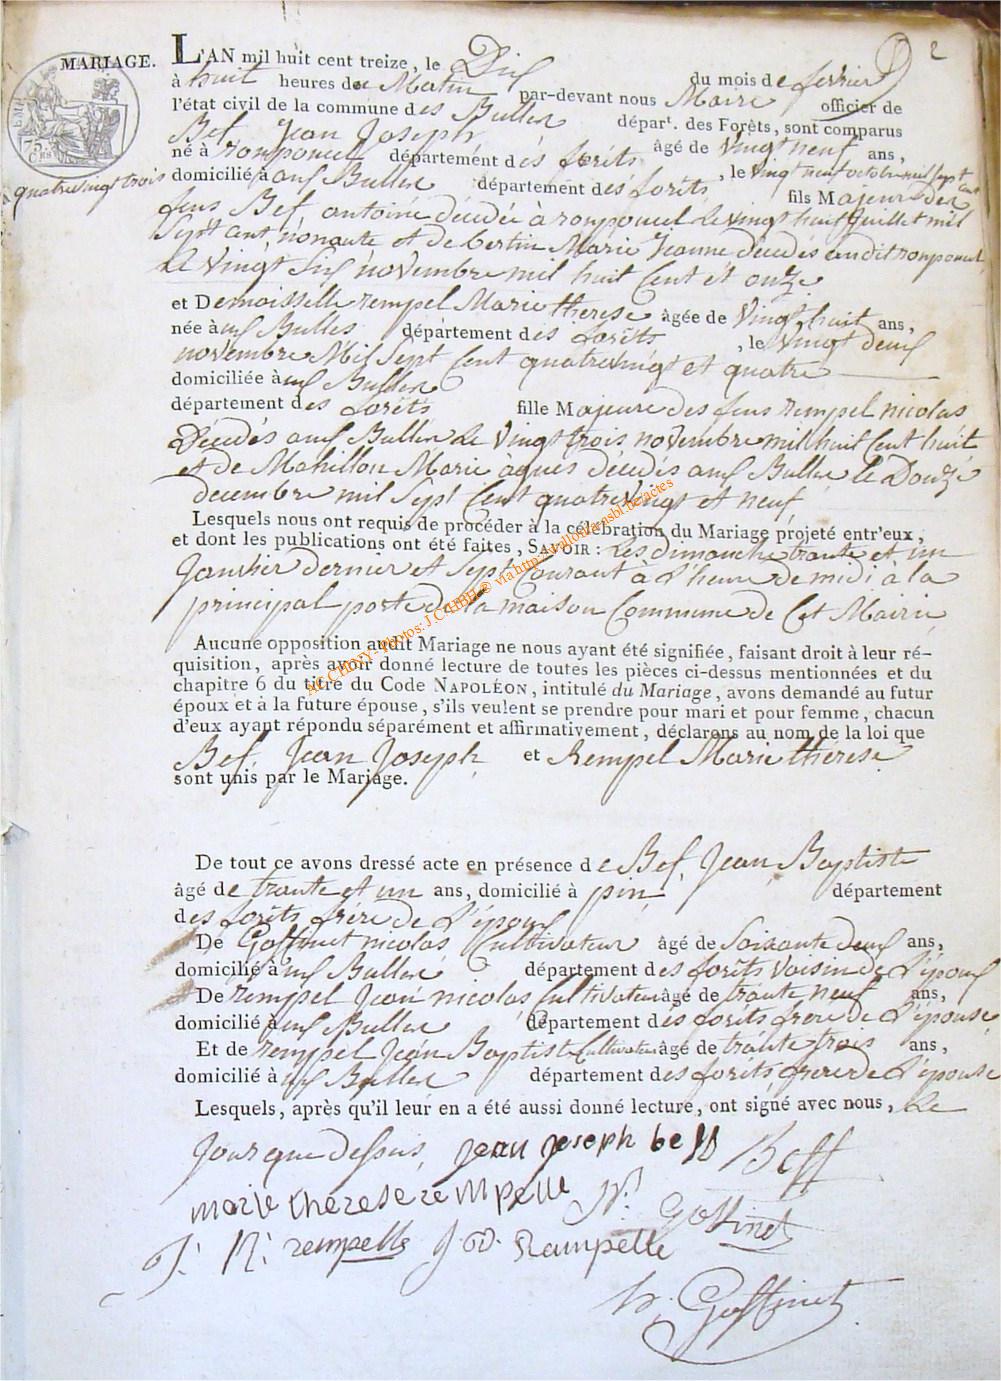 2
MARIAGE. L'AN mil huit cent treize, le Dix du mois de fevrier
à huit heures de Matin par-devant nous Maire officier de
l'état civil de la commune des Bulles départ. des Forêts, sont comparus
Bef, Jean Joseph âgé de Vingt neuf ans,
né à romponcel département des forêts, le vingt neuf octobre mil sept cent
quatrevingt trois
domicilié à aux Bulles département des forêts fils Majeur des
feus Bef, antoine décédé à romponcel le vingt huit Juillet mil
Sept cent, nonante et de bertin Marie Jeanne décédés audit romponcel
le vingt six novembre mil huit Cent et onze
et Demoisselle rempel Marie therese âgée de Vingt huit ans,
née à aux Bulles département des forêts, le vingt deux
novembre Mil Sept Cent quatrevingt et quatre
domiciliée à aux Bulles
département des forêts fille Majeure des feus rempel nicolas
Décédés aux Bulles le Vingt trois novembre mil huit Cent huit
et de Mahillon Marie agnes décédés aux Bulles le Douze
decembre mil Sept Cent quatrevingt et neuf
Lesquels nous ont requis de procéder à la célébration du Mariage projeté entr'eux,
et dont les publications ont été faites, SAVOIR : Les dimanche trante et un
Janvier dernier et Sept Courant à l'heure de midi à la
principal porte de la maison Commune de Cet Mairie
Aucune opposition audit Mariage ne nous ayant été signifiée, faisant droit à leur ré-
quisition, après avoir donné lecture de toutes les pièces ci-dessus mentionnées et du
chapitre 6 du titre du Code NAPOLÉON, intitulé du Mariage, avons demandé au futur
époux et à la future épouse, s'ils veulent se prendre pour mari et pour femme, chacun
d'eux ayant répondu séparément et affirmativement, déclarons au nom de la loi que
Bef, Jean Joseph et Rempel Marie thérese
sont unis par le Mariage.
De tout ce avons dressé acte en présence de Bef, Jean Baptiste
âgé de trante et un ans, domicilié à pin département
des forêts frére de L'époux
De Goffinet nicolas Cultivateur âgé de Soixante deux ans,
domicilié à aux Bulles département des forêts voisin de L'époux
De rempel Jean nicolas Cultivateur âgé de trante neuf ans,
domicilié à aux Bulles département des forêts frere de L'épouse
Et de rempel Jean Baptiste Cultivateur âgé de trante trois ans,
domicilié à aux Bulles département des forêts frere de L'épouse
Lesquels, après qu'il leur en a été aussi donné lecture, ont signé avec nous, Le
Jour que dessus, jean joseph beff Beff
marie therese rempelle N. Goffinet
J: N: rempelle J. B. Rampelle
h. Goffinet